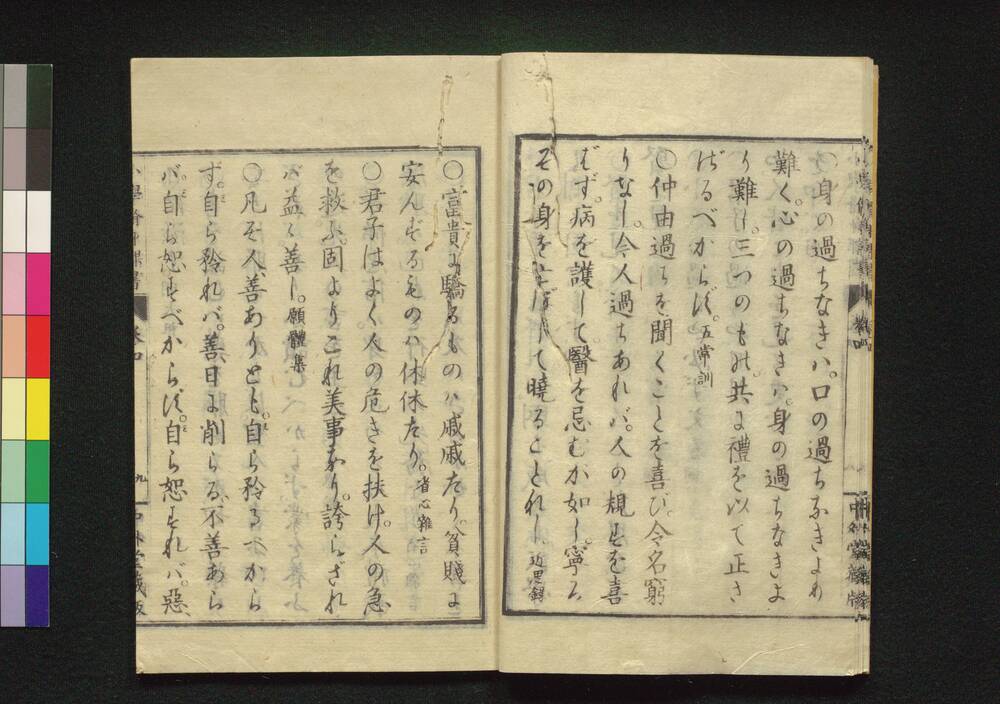 〇身の過ちなきハ。口の過ちなきより
難く。心の過ちなきハ。身の過ちなきよ
り難し。三つのもの。共に禮を以て正さ
ざるべからず。五常訓
〇仲由過ちを聞くことを喜び。令名窮
りなし。今人過ちあれバ。人の規すを喜
ばず。病を護して。醫を忌むか如し。寧ろ
その身を滅ぼして曉ることなし。近思錄
〇富貴に驕るものハ戚戚たり。貧賤に
安んずるものハ休休たり。省心雜言
〇君子はよく人の危きを扶け。人の急
を救ふ。固よりこれ美事なり。誇らざれ
バ益〻善し。願體集
〇凡そ人善ありとも。自ら矜るべから
ず。自ら矜れバ。善日に削らる。不善あら
バ。自ら恕すべからず。自ら恕すれバ。惡
卷四
九